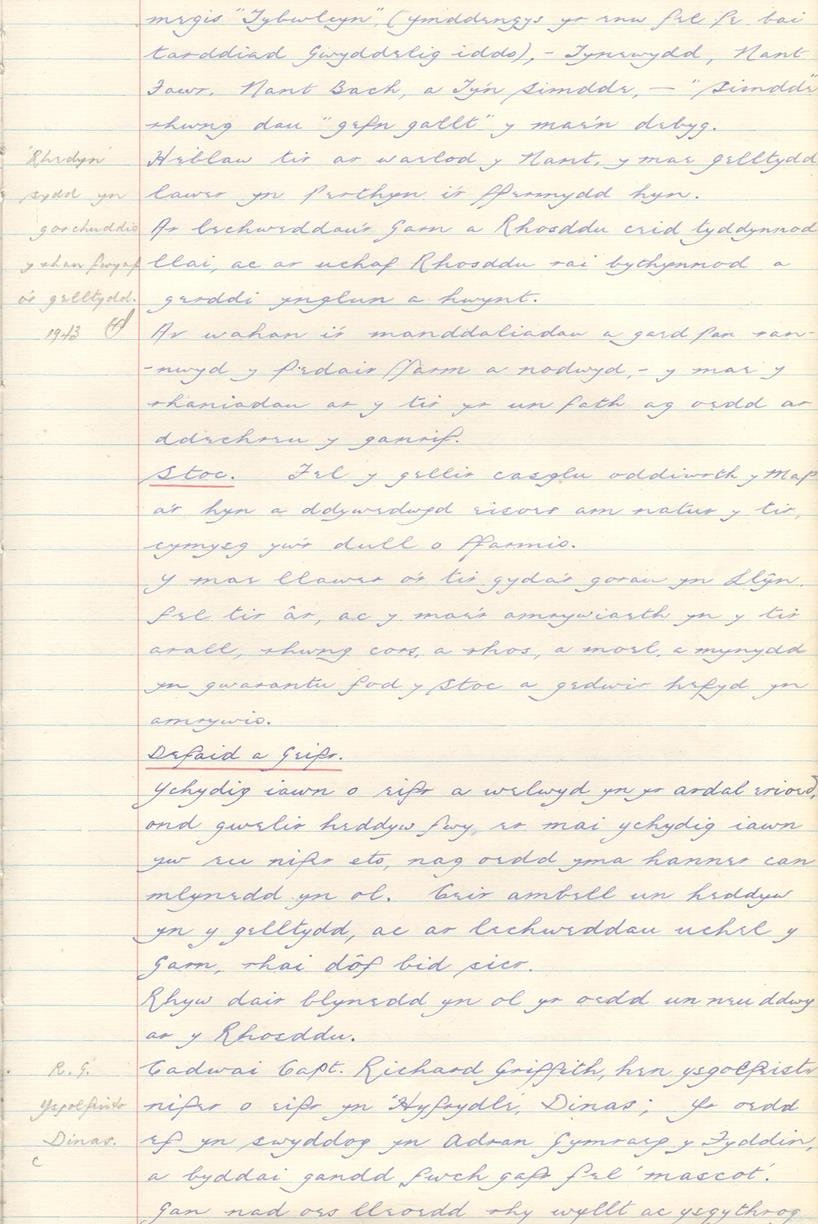 megis "Tybwleyn" (ymddengys yr enw fel pe bai
tarddiad Gwyddelig iddo), - Tynewydd, Nant
Fawr. Nant Bach, a Ty'n Simdde, — "Simdde"
rhwng dau "gefn gallt" y mae'n debyg.
Heblaw tir ar waelod y Nant, y mae gelltydd
lawer yn perthyn i'r ffermydd hyn.
Ar lechweddau'r Garn a Rhosddu ceid tyddynnod
llai, ac ar uchaf Rhosddu rai bythynnod a
gerddi ynglun a hwynt.
'Rhedyn'
sydd yn
gorchuddio
y rhan fwyaf
o'r gelltydd.
1943
Ar wahan i'r manddaliadau a gaed pan ran-
-nwyd y pedair ffarm a nodwyd, - y mae y
rhaniadau ar y tir yr un fath ag oedd ar
ddechreu y ganrif.
Stoc. Fel y gellir casglu oddiwrth y Map
a'r hyn a ddywedwyd eisoes am natur y tir,
cymysg yw'r dull o ffarmio.
Y mae llawer o'r tir gyda'r gorau yn Llŷn.
fel tir âr, ac y mae'r amrywiaeth yn y tir
arall, rhwng cors, a rhos, a moel, a mynydd
yn gwarantu fod y stoc a gedwir hefyd yn
amrywio.
Defaid a Geifr.
Ychydig iawn o eifr a welwyd yn yr ardal erioed,
ond gwelir heddyw fwy, er mai ychydig iawn
yw eu nifer eto, nag oedd yma hanner can
mlynedd yn ol. Ceir ambell un heddyw
yn y gelltydd, ac ar lechweddau uchel y
Garn, rhai dôf bid sicr.
Rhyw dair blynedd yn ol yr oedd un neu ddwy
ar y Rhosddu.
R. G.
Ysgolfeistr
Dinas.
Cadwai Capt. Richard Griffith, hen ysgolfeistr
nifer o eifr yn 'Hyfrydle', Dinas; Yr oedd
ef yn swyddog yn Adran Gymraeg y Fyddin,
a byddai gandd fwch gafr fel 'mascot'.
Gan nad oes lleoedd rhy wyllt ac ysgythrog